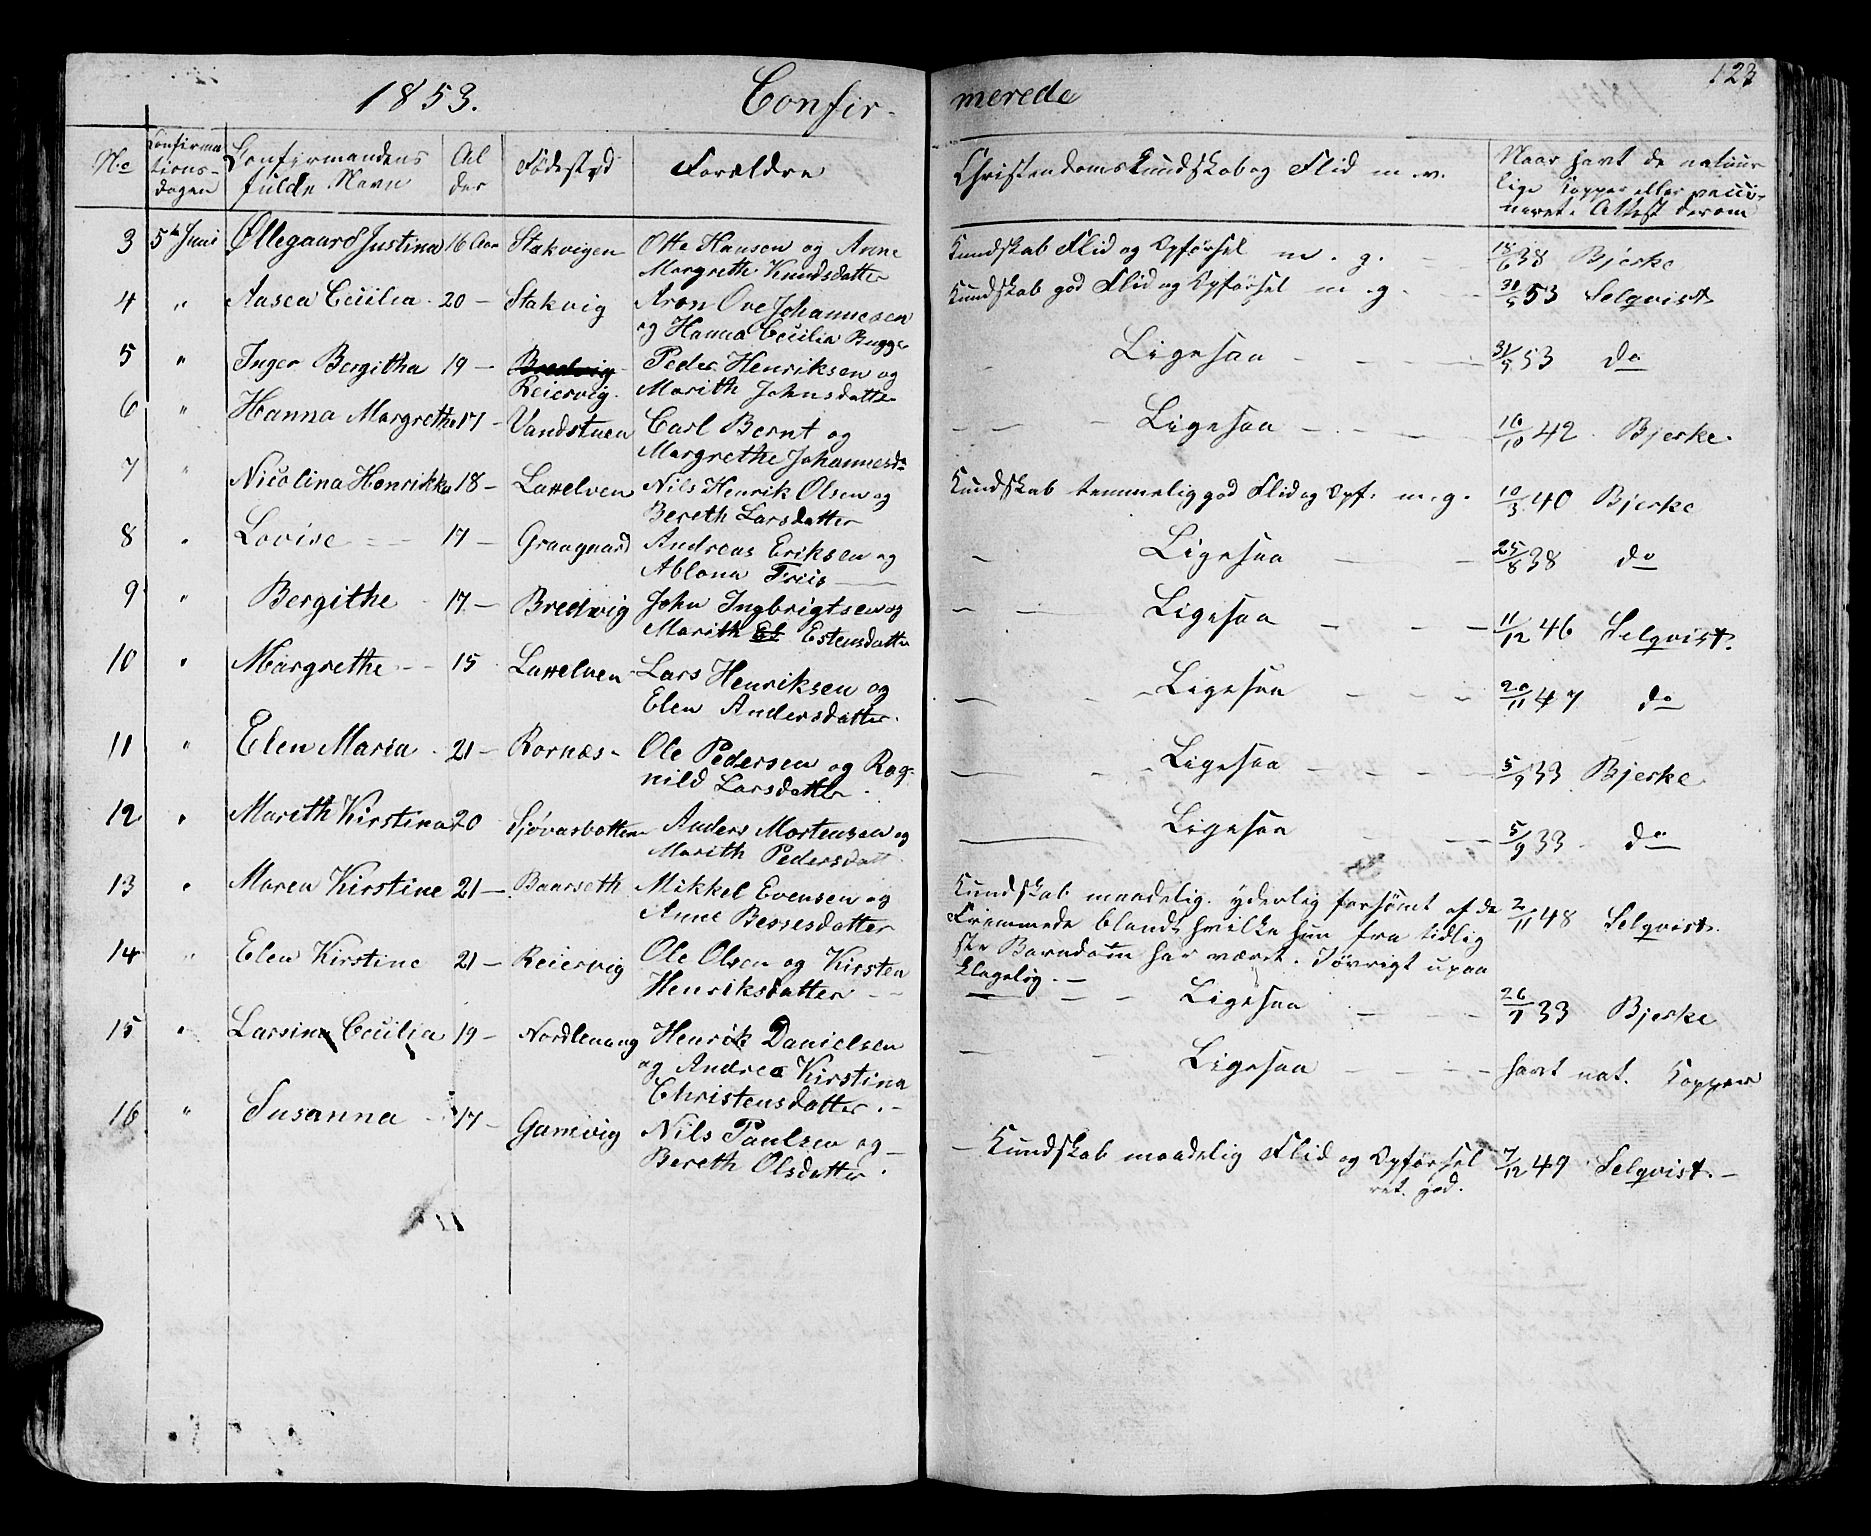 1853. Confirmerede 123
No Confirmationsdagen Confirmandens fulde Navn Alder Fødested Forældre Christendomskundskab og Flid m. v. Naar havt de naturlige Kopper eller vaccineret. Attest derom
3 5te Juni Øllegaard Justina 16 Aar Stakvigen Otte Hansen og Anne Kundskab Flid og Opførsel m. g. 18/6 38 Bjerke
Margrethe Knudsdatter
4 " Aasea Cecilia 20 - Stakvig Aron Ove Johannesen Kundskab god Flid og Opførsel m. g. 31/5 53 Selqvist
og Hanna Cecilia Bugge
5 " Inger Bergitha 19 - Bredvig Peder Henriksen og Ligesaa 31/5 53 do
Reiervig. Marith Johnsdatter
6 " Hanna Margrethe 17 - Vandstuen Carl Bernt og Ligesaa 16/10 42 Bjerke.
Margrethe Johannesd
7 " Nicolina Henrikka 18 - Lattelven Nils Henrik Olsen og Kundskab temmelig god Flid og Opf. m. g. 10/3 40 Bjerke
Bereth Larsdatter
8 " Lovise 17 - Graagaard Andreas Eriksen og Ligesaa 25/8 38 do
Ablona Friis
9 " Bergithe 17 - Bredvig John Ingbrigtsen og Ligesaa 11/12 46 Selqvist.
Marith El Estensdatter
10 " Margrethe 15 Lattelven Lars Henriksen og Ligesaa 20/11 47 do
Elen Andersdatter.
11 " Elen Maria 21 - Rornæs Ole Pedersen og Rag- Ligesaa 5/9 33 Bjerke
nild Larsdatter.
12 " Marith Kirstina 20 Sjøvasbotten Anders Mortensen og Ligesaa 5/9 33 do
Marith Pedersdatt
13 " Maren Kirstine 21 - Baarseth Mikkel Evensen og Kundskab maadelig. yderlig forsømt af de 2/11 48 Selqvist.
Anne Berresdatter Fremmede blandt hvilke hun fra tidlig
ste Barndom har været. Iøvrigt upaa
klagelig.
14 " Elen Kirstine 21 - Reiervig Ole Olsen og Kirsten Ligesaa 26/7 33 Bjerke
Henriksdatter
15 " Larsine Cecilia 19 - Nordlenang Henrik Danielsen Ligesaa havt nat. Kopper
og Andrea Kirstina
Christensdatter.
16 " Susanna 17 - Gamvig Nils Paulsen og Kundskab maadelig Flid og Opførsel 7/12 49 Selqvist.
Bereth Olsdatter. ret god.